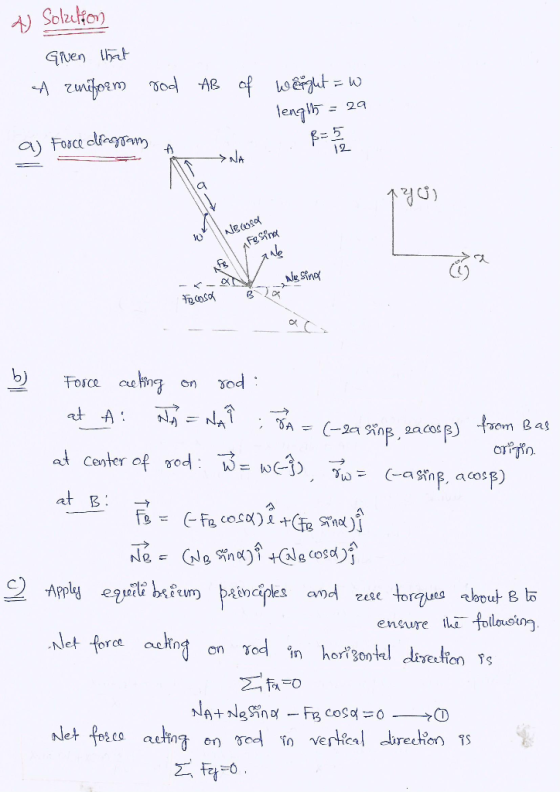 A) Solution
Given that
A uniform rod AB of weight = W
length = 2a
β = 5/12
a) Force diagram
A
NA
a
W
NBcosα
FBsinα
FB
NB
α
NBsinα
FBcosα
B
α
α
y(j)
x
(i)
b) Force acting on rod :
at A : N⃗A = NA î ; r⃗A = (-2a sinβ, 2a cosβ) from B as
origin.
at center of rod : W⃗ = W(-ĵ), r⃗W = (-a sinβ, a cosβ)
at B :
F⃗B = (-FB cosα) î + (FB sinα) ĵ
N⃗B = (NB sinα) î + (NB cosα) ĵ
c) Apply equilibrium principles and use torques about B to
ensure the following.
.Net force acting on rod in horizontal direction is
ΣFx=0
NA + NB sinα - FB cosα = 0 → ①
Net force acting on rod in vertical direction is
Σ Fy=0.